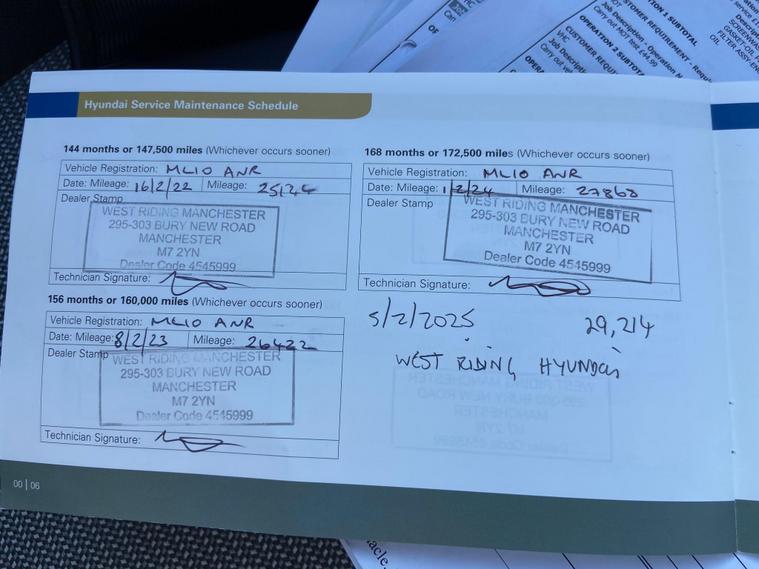 Hyundai Service Maintenance Schedule
144 months or 147,500 miles (Whichever occurs sooner)
Vehicle Registration: ML10 ANR
Date: Mileage: 16/2/22 Mileage: 25124
Dealer Stamp
WEST RIDING MANCHESTER
295-303 BURY NEW ROAD
MANCHESTER
M7 2YN
Dealer Code 4545999
Technician Signature:
156 months or 160,000 miles (Whichever occurs sooner)
Vehicle Registration: ML10 ANR
Date: Mileage: 8/2/23 Mileage: 26422
Dealer Stamp
WEST RIDING MANCHESTER
295-303 BURY NEW ROAD
MANCHESTER
M7 2YN
Dealer Code 4545999
Technician Signature:
168 months or 172,500 miles (Whichever occurs sooner)
Vehicle Registration: ML10 ANR
Date: Mileage: 1/2/24 Mileage: 27868
Dealer Stamp
WEST RIDING MANCHESTER
295-303 BURY NEW ROAD
MANCHESTER
M7 2YN
Dealer Code 4545999
Technician Signature:
5/2/2025 29,214
WEST RIDING HYUNDAI
00 | 06
OPERATION 1 SUBTOTAL
CUSTOMER REQUIREMENT
Job Description - Operation
Carry out MOT test £44.99
OPERATION 2 SUBTOTAL
VHC
Job Descrip
Carry out
GASKET-OIL
FILTER ASSY-EN
OIL